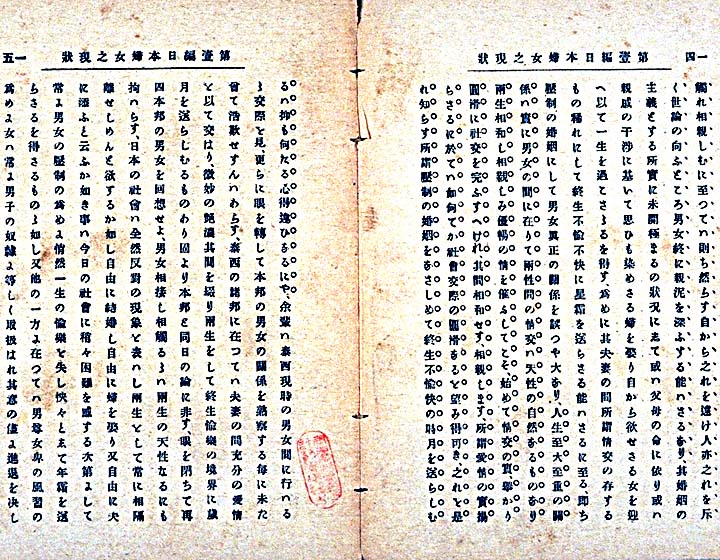 一四
第壹編日本婦女之現狀
觸れ相親しむに至つてハ則ち然らす自から之れを遠け人亦之れを斥
く世論の向ふところ男女終に親泥を深ふする能ハさるなり、其婚姻の
主義とする所實に未開極まるの狀況にして或ハ父母の命に依り或ハ
親戚の干涉に基いて思ひも染めさる婦を娶り自から欲せさる女を迎
へ以て一生を過こさゝるを得す、爲めに其夫妻の間所謂情交の存する
もの稀れにして終生不愉不快に星霜を送らさる能ハさるに至る即ち
壓制の婚姻にして男女眞正の關係を誤つや大なり、人生至大至重の關
係ハ實に男女の間に在りて兩性間の情交ハ天性の自然あるものなり
兩生相和し相親しみ優暢の情を催ふしてこそ始めて情交の實擧かり
圓滑に社交を完ふすへけれ其間相和せす相親します、所謂愛情の實揚
らさるに於てハ如何てか社會交際の圓滑なるを望み得可き之れを是
れ知らす所謂壓制の婚姻をなさしめて終生不愉快の時月を送らしむ
第壹編日本婦女之現狀
一五
るハ抑も何たる心得違ひなるにや、余輩ハ泰西現時の男女間に行ハる
ゝ交際を見、更らに眼を轉して本邦の男女の關係を熟察する每に未た
曾て浩歎せすんハあらす、泰西の諸邦に在つてハ夫妻の間充分の愛情
と以て交はり、微妙の艶濃其間を綴り兩生をして終生愉樂の境界に歲
月を送らしむるものあり固より本邦と同日の論に非す、眼を閉ちて再
四本邦の男女を回想せよ、男女相接し相觸るゝハ兩生の天性なるにも
拘ハらす、日本の社會ハ全然反對の現象を表ハし兩生として常に相隔
離せしめんと欲するか如し自由に結婚し自由に婦を娶り又自由に夫
に添ふと云ふか如き事ハ今日の社會に稍々困難を感する次第よして
常よ男女の壓制の爲めよ悄然一生の愉樂を失し怏々とゑて年霜を送
らさるを得さるものゝ如し又他の一方よ在つてハ男尊女卑の風習の
爲めよ女ハ常よ男子の奴隷よ等しく取扱はれ其意の儘よ進退を決し